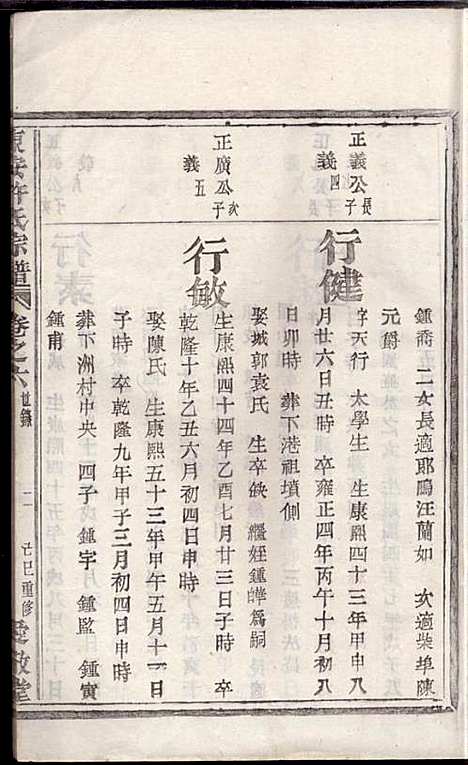 鍾喬 二女長適耶鵰汪蘭如 次適柴埠陳
元爵
正義公長子
義四
行健
字天行 太學生 生康熙四十三年甲申八
月廿六日丑時 卒雍正四年丙午十月初八
日卯時 葬下港祖墳側
娶城郭袁氏 生卒缺 繼姪鍾皣爲嗣
正廣公次子
義五
行敏
生康熙四十四年乙酉七月廿三日子時 卒
乾隆十年乙丑六月初四日申時
娶陳氏 生康熙五十三年甲午五月十一日
子時 卒乾隆九年甲子三月初四日申時
葬下洲村中央 四子 鍾宇 鍾監 鍾實
鍾甫
東安許氏宗譜 卷之六 世錄 二 己巳重修 愛敬堂